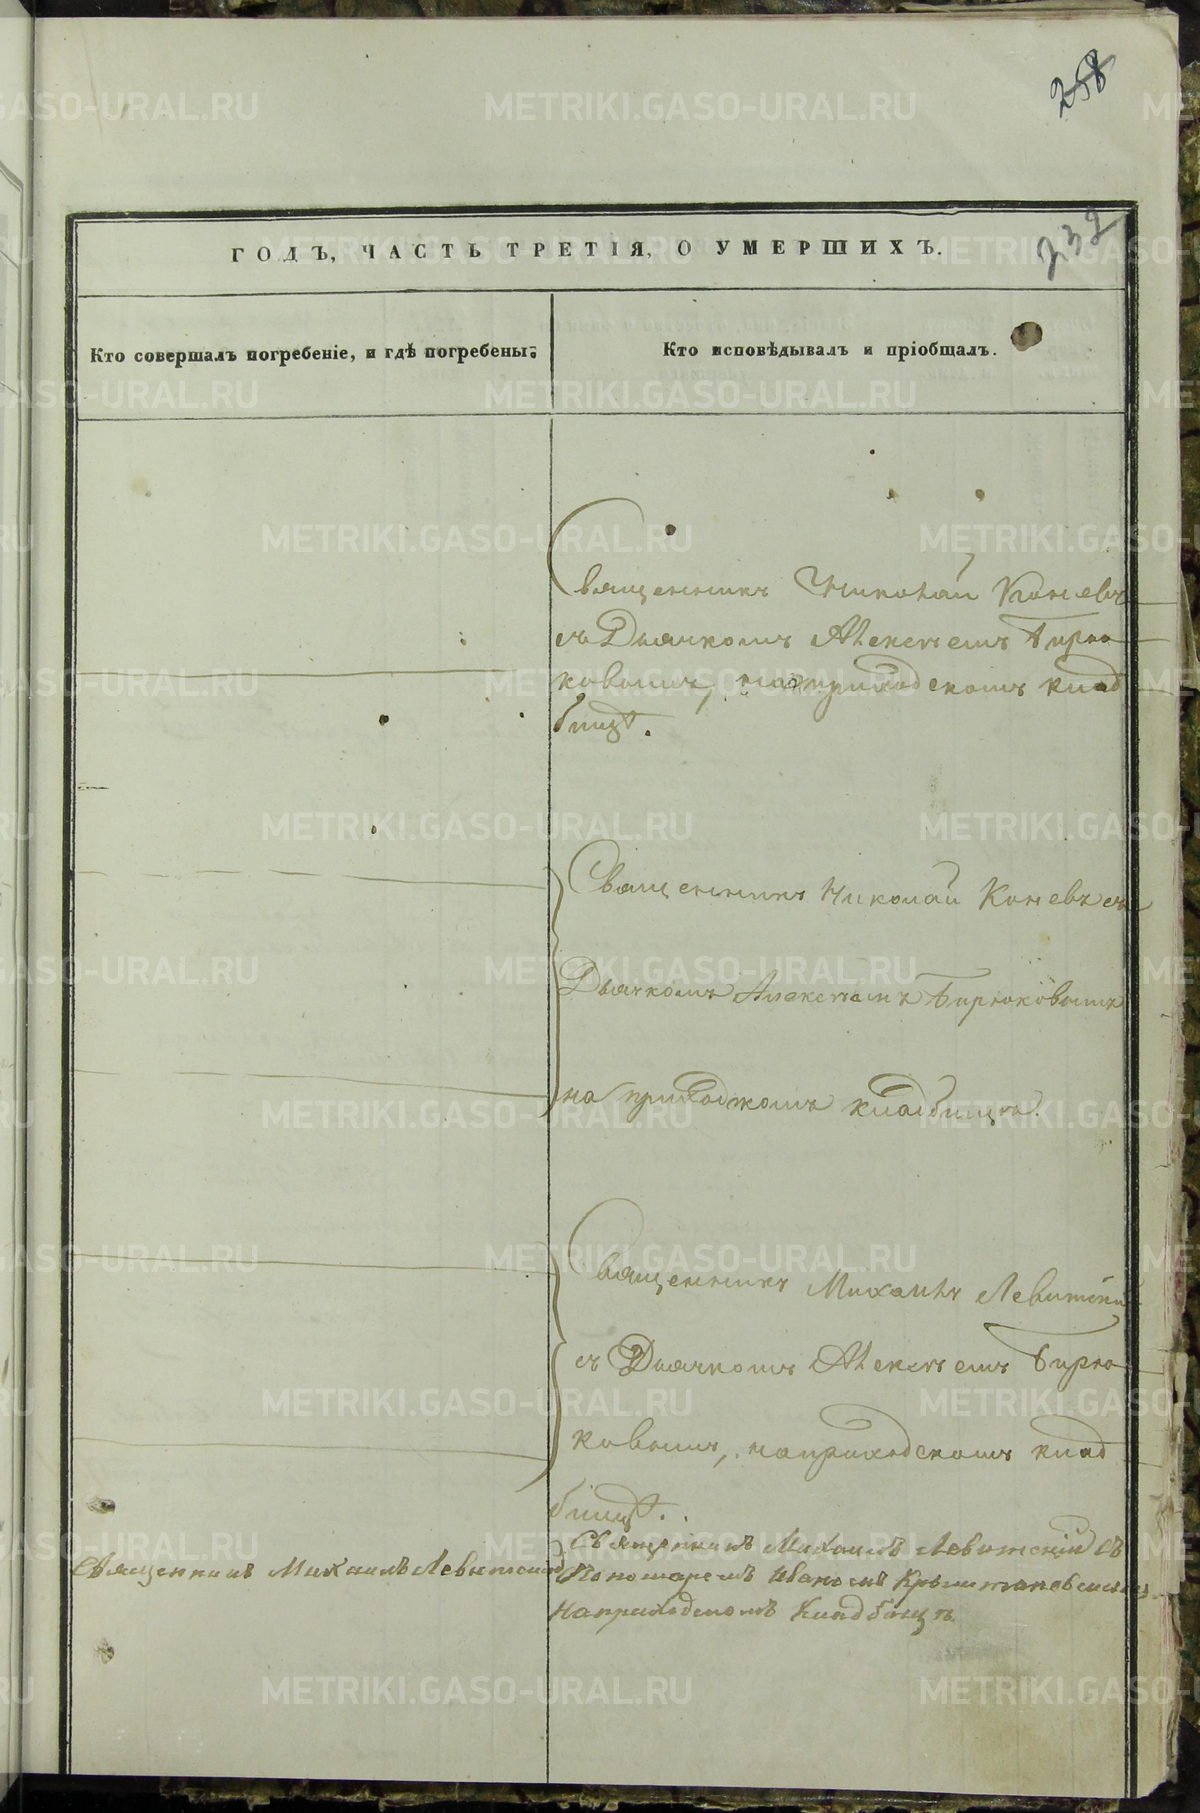 258
232
ГОДЪ, ЧАСТЬ ТРЕТІЯ, О УМЕРШИХЪ.
Кто совершалъ погребеніе, и гдѣ погребены:
Кто исповѣдывалъ и пріобщалъ.
Священникъ Николай Коневъ
съ Дьячкомъ Алексѣемъ Бирю
ковымъ, на приходскомъ клад
бищѣ.
Священникъ Николай Коневъ съ
Дьячкомъ Алексѣемъ Бирюковымъ
на приходскомъ кладбищѣ.
Священникъ Михаилъ Левитскій
съ Дьячкомъ Алексѣемъ Бирю
ковымъ, на приходскомъ клад
бищѣ.
Священникъ Михаилъ Левитский
Священникъ Михаилъ Левитскій съ
Пономаремъ Иваномъ
На приходскомъ Кладбищѣ.
METRIKI.GASO-URAL.RU